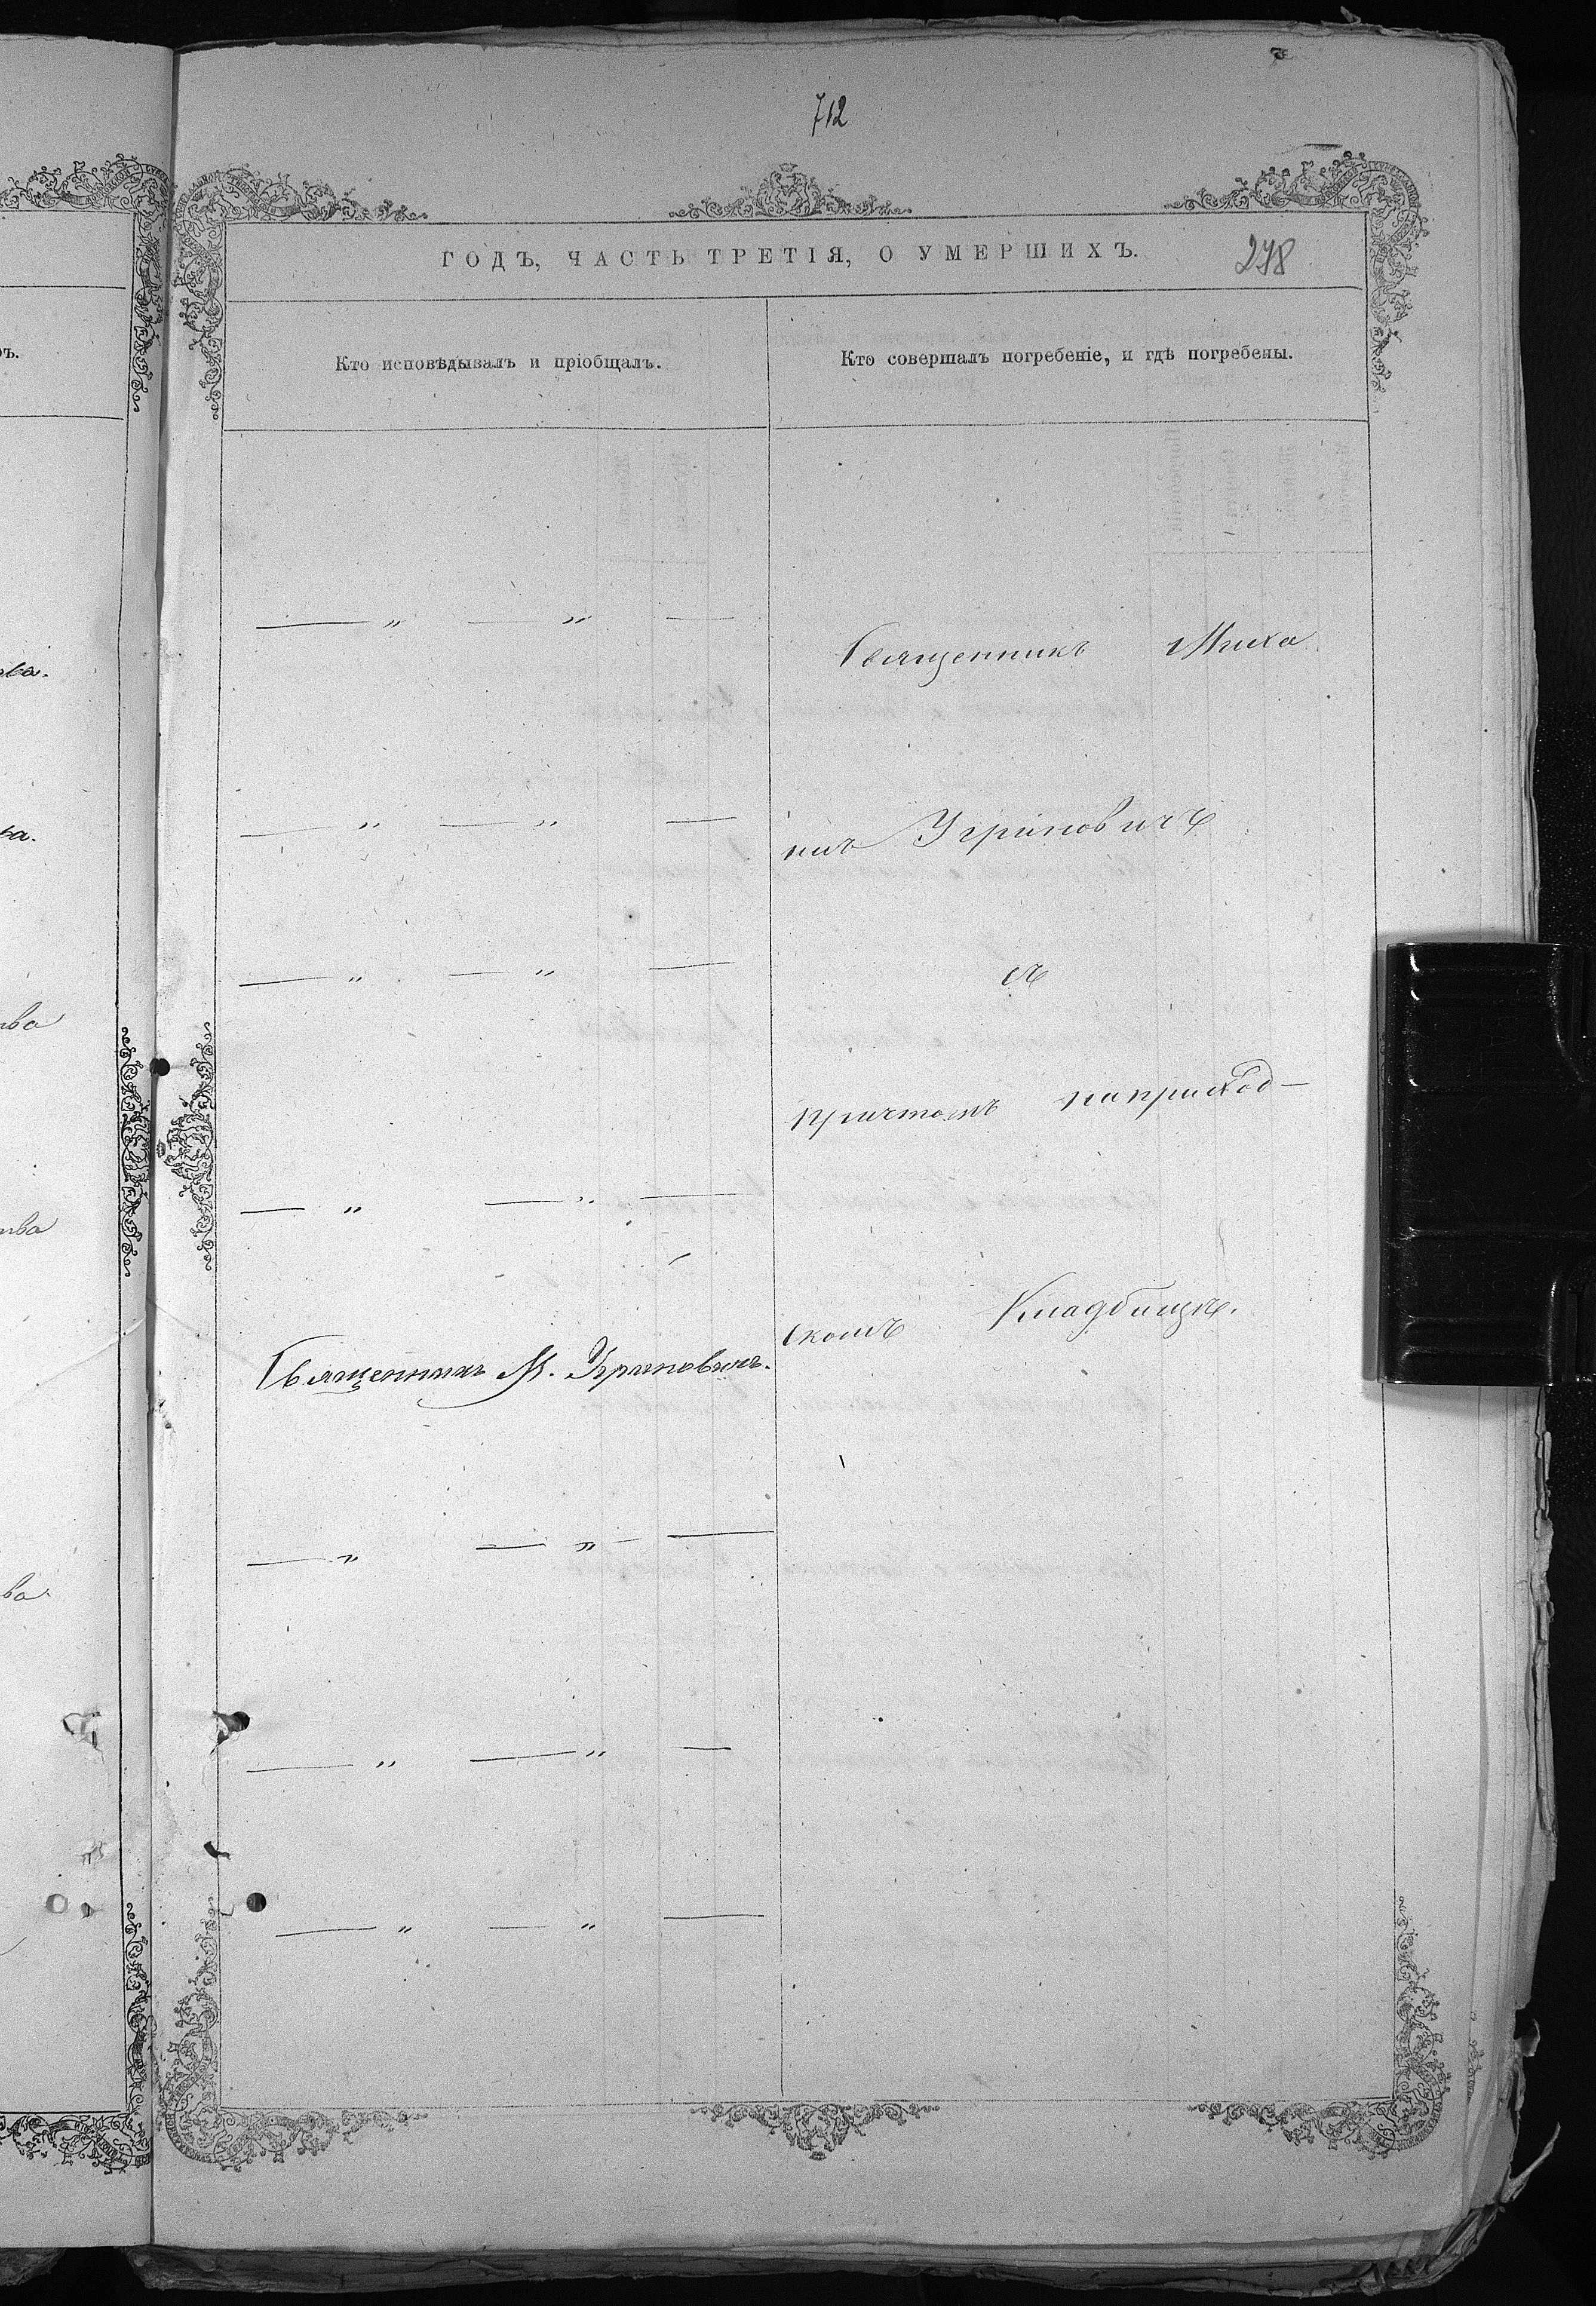 712
ГОДЪ, ЧАСТЬ ТРЕТІЯ, О УМЕРШИХЪ.
278
Кто исповѣдывалъ и пріобщалъ.
Кто совершалъ погребеніе, и гдѣ погребены.
— " — " —
— " — " —
— " — " —
— " — " —
Священникъ М. Угриновичъ.
— " — " —
— " — " —
— " — " —
Священникъ Миха
илъ Угриновичъ
съ
причтомъ на приход-
скомъ Кладбищѣ.